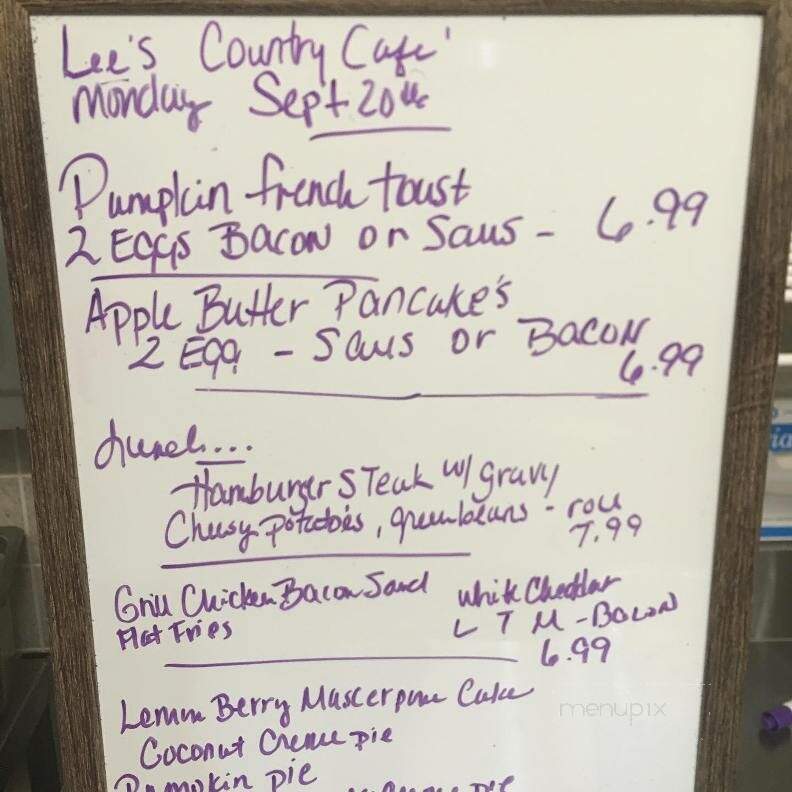 Lee's Country Cafe'
Monday Sept 20th
Pumpkin french toast
2 EGGS BACON or Saus - 6.99
Apple Butter Pancake's
2 Egg - Saus or BACON
6.99
Lunch...
Hamburger STeak w/ gravy
Cheesy potatoes, greenbeans - roll
7.99
Grill Chicken Bacon Sand White Cheddar
Flat Fries L T M - BACON
6.99
Lemon Berry Mascerpone Cake
Coconut Creme pie
Pumpkin pie
pie
menupix